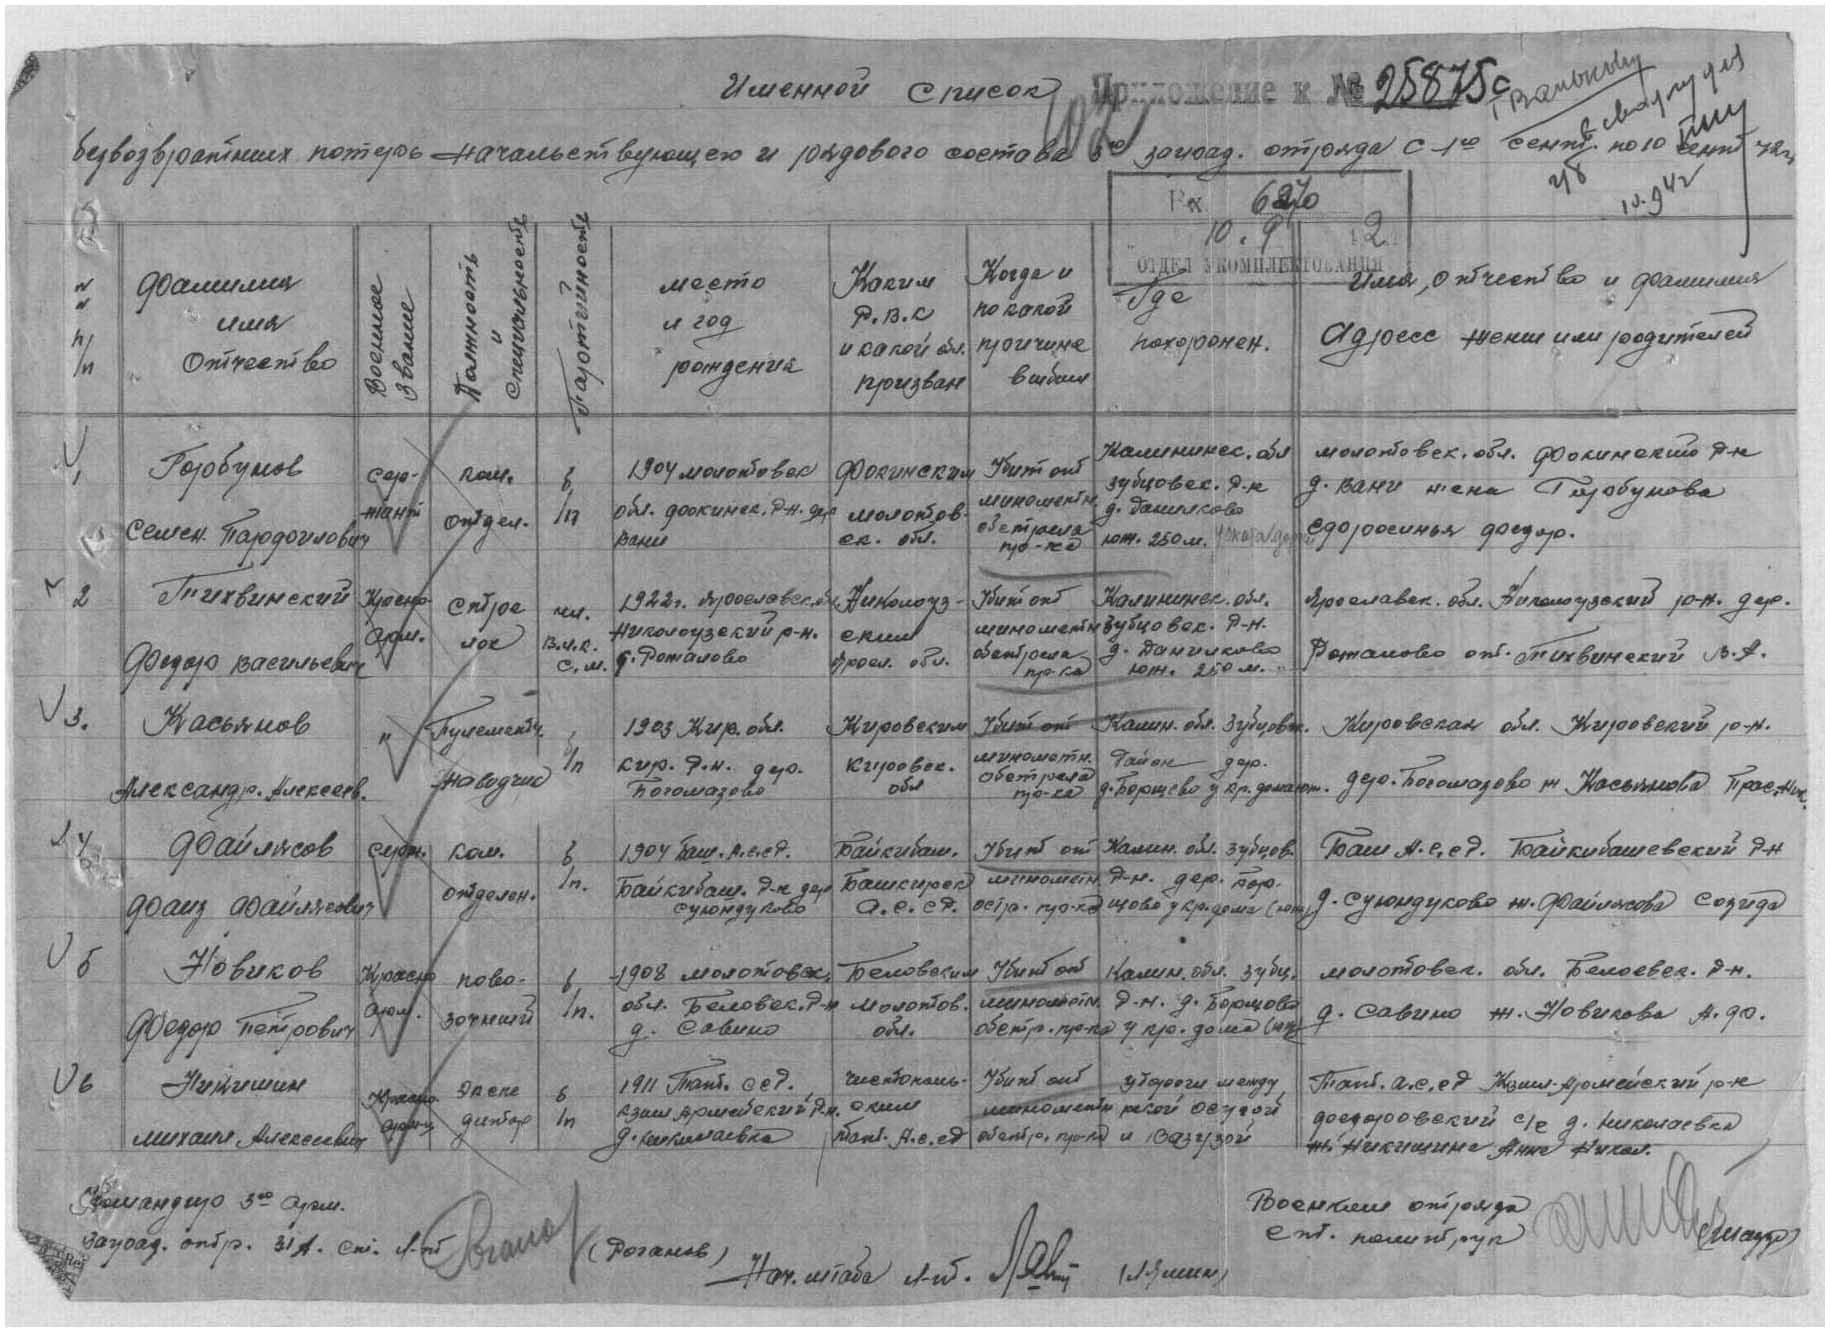 Именной список Приложение к № 25875с
безвозвратных потерь начальствующего и рядового состава 3го заград. отряда с 1го сент. по 10 сент 42г.
Вх. 6270
10.9 2
ОТДЕЛ УКОМПЛЕКТОВАНИЯ
10.9.42
№№ п/п
Фамилия имя отчество
Военное звание
Должность и специальность
Партийность
место и год рождения
Каким Р.В.К и какой обл. призван
Когда и по какой причине выбыл
Где похоронен.
Имя, отчество и фамилия
Адресс жены или родителей
1 Горбунов Семен Пардоилович
сержант
ком. отдел.
б/п
1904 молотовск обл. Фокинск. р-н. дер Вани
Фокинским молотовск. обл.
Убит от минометн. обстрела пр-ка
Калининск. обл зубцовск. р-н д. Данилково юж. 250 м.
молотовск. обл. Фокинский р-н
д. Вани жена Горбунова
Федор.
2 Тихвинский Федор Васильевич
Красноарм.
стрелок
чл. В.Л.К.С.М.
1922г. Ярославск. обл. Николоузский р-н. д. Роталово
Николоузским Яросл. обл.
Убит от минометн обстрела пр-ка
Калининск. обл. Зубцовск. р-н. д. Данилково юж. 250 м.
Ярославск. обл. Николоузский р-н. дер.
Роталово от. Тихвинский В. А.
3. Касьянов Александр. Алексеев.
"
Пулеметч. наводчик
б/п
1903 Кир. обл. кир. р-н. дер. Богомазово
Кировским кировск. обл
Убит от минометн. обстрела пр-ка
Калин. обл. Зубцовск. район дер. д. Борщево у кр. дома юж.
Кировская обл. Кировский р-н.
дер. Богомазово ж Касьянова
4 Файлясов Фаиз Файлясович
серж.
ком. отделен.
б/п.
1904 Баш. А.ССР. Байкибаш. р-н дер Суюндуково
Байкибаш. Башкирск А.С.СР.
Убит от миномет. остр. пр-ка
Калин. обл. Зубцов. р-н. дер. Борщово у кр. дома (юж)
Баш А.С.СР. Байкибашевский р-н
д. Суюндуково ж. Файлясова Сагида
5 Новиков Федор Петрович
Красноарм.
повозочный
б/п.
1908 молотовск. обл. Беловск. р-н д. Савино
Беловским молотов. обл.
Убит от минометн. обстр. пр-ка
Калин. обл. зубц. р-н. д. Борщово у кр. дома (юж)
молотовск. обл. Белоевск. р-н.
д. Савино ж. Новикова А. Ф.
6 Никишин Михаил. Алексеевич
Красноармец
экспедитор
б/п
1911 Тат. ССР. Кзыл Армейский р-н. д. Николаевка
чистопольским тат. А.С.СР
Убит от минометн обстр. пр-ка
у дороги между рекой Осугой и Вазузой
Тат. А.С.СР Кзыл-Армейский р-н
Федоровский с/с д. Николаевка
ж. Никишина Анна Никол.
Командир 3го арм.
Заград. отр. 31А. ст. л-т (Роганов)
Нач. штаба л-т. (Лямин)
Военком отряда
ст. политрук